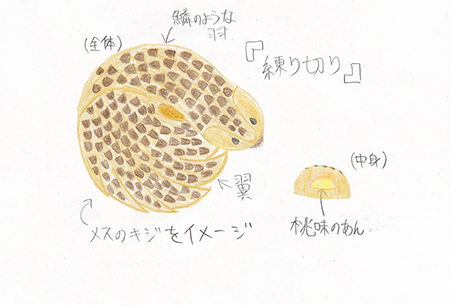 鱗のような
羽
(全体)
『練り切り』
(中身)
翼
メスのキジをイメージ
桃味のあん